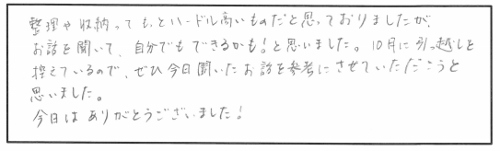 整理や収納ってもっとハードル高いものだと思っておりましたが、
お話を聞いて、自分でもできるかも！と思いました。10月に引っ越しを
控えているので、ぜひ今日聞いたお話を参考にさせていただこうと
思いました。
今日はありがとうございました！